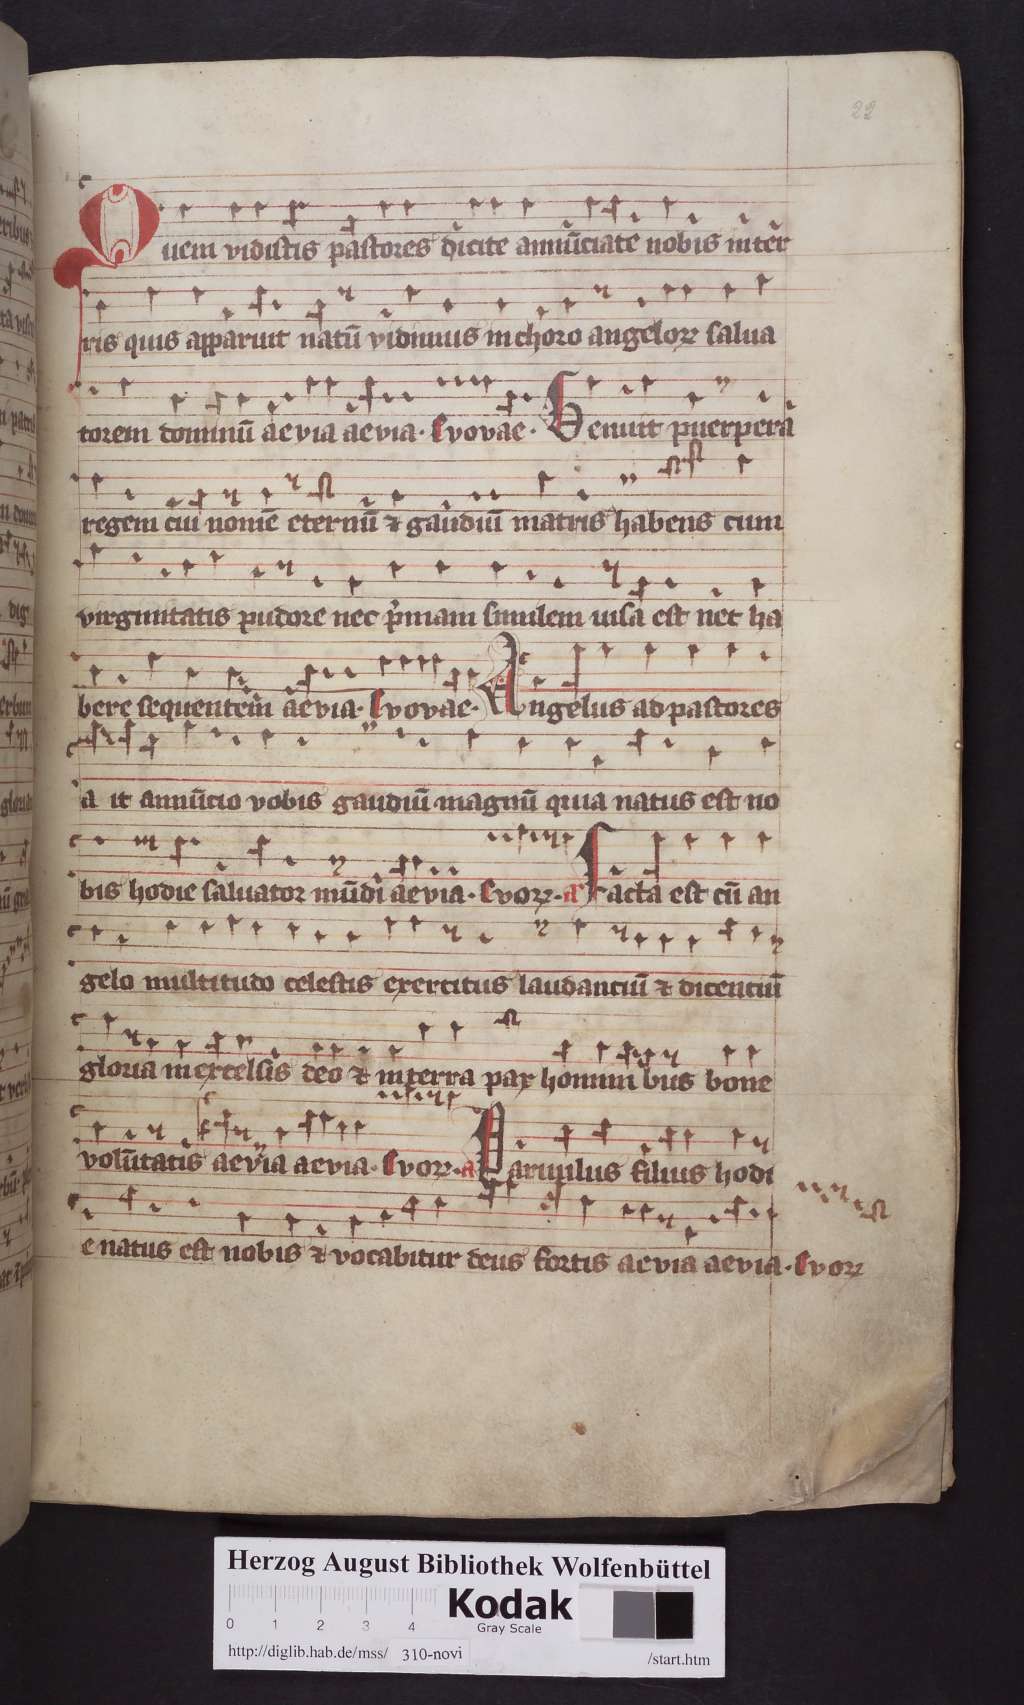 22
Quem vidistis pastores dicite annūciate nobis in terˉ
ris quis apparuit natū vidimus in choro angeloꝝ salua
torem dominū aevia aevia. Evovae. Genuit puerpera
regem cui nomē eternū ⁊ gaudiū matris habens cum
virginitatis pudore nec pˉmam similem uisa est nec ha
bere sequentem aevia. Evovae. Angelus ad pastores
a it annūcio vobis gaudiū magnū quia natus est no
bis hodie saluator mūdi aevia. Evoꝝ. a Facta est cū an
gelo multitudo celestis exercitus laudanciū ⁊ dicenciū
gloria in excelsis deo ⁊ in terra pax homini bus bone
volūtatis aevia aevia. Evoꝝ. a Paruulus filius hodi
e natus est nobis ⁊ vocabitur deus fortis aevia aevia. Evoꝝ
Herzog August Bibliothek Wolfenbüttel
0 1 2 3 4
Kodak
Gray Scale
http://diglib.hab.de/mss/ 310-novi /start.htm